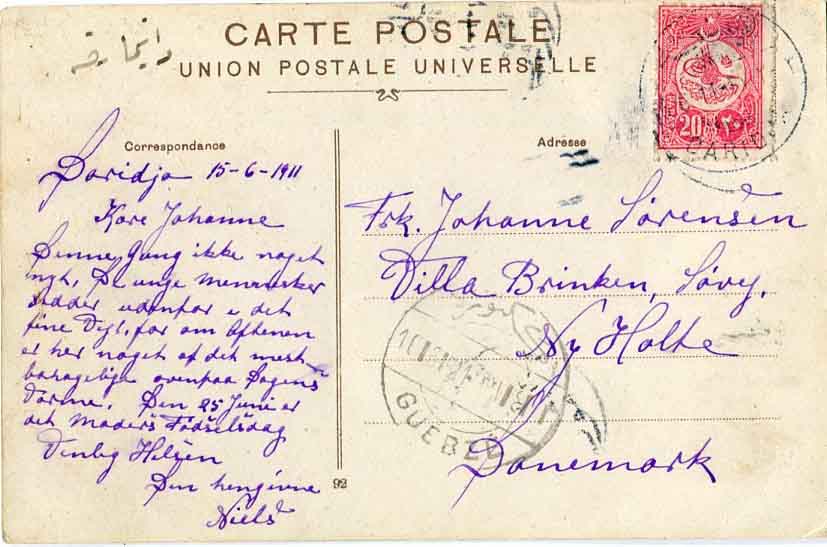 CARTE POSTALE
UNION POSTALE UNIVERSELLE
دانیمارقه
Correspondance
Daridja 15-6-1911
Kære Johanne
Denne Gang ikke noget
nyt. De unge Mennesker
sidder udenfor i det
fine Vejr, for om Aftenen
er her noget af det mest
behagelige ovenpaa Dagens
Varme. Den 25 Juni er
det Moders Fødselsdag
Venlig Hilsen
Din hengivne
Niels
92
Adresse
20 ٢٠
Frk. Johanne Sørensen
Villa Brinken, Søvej.
Ny Holte
Danemark
GUEBZÉ